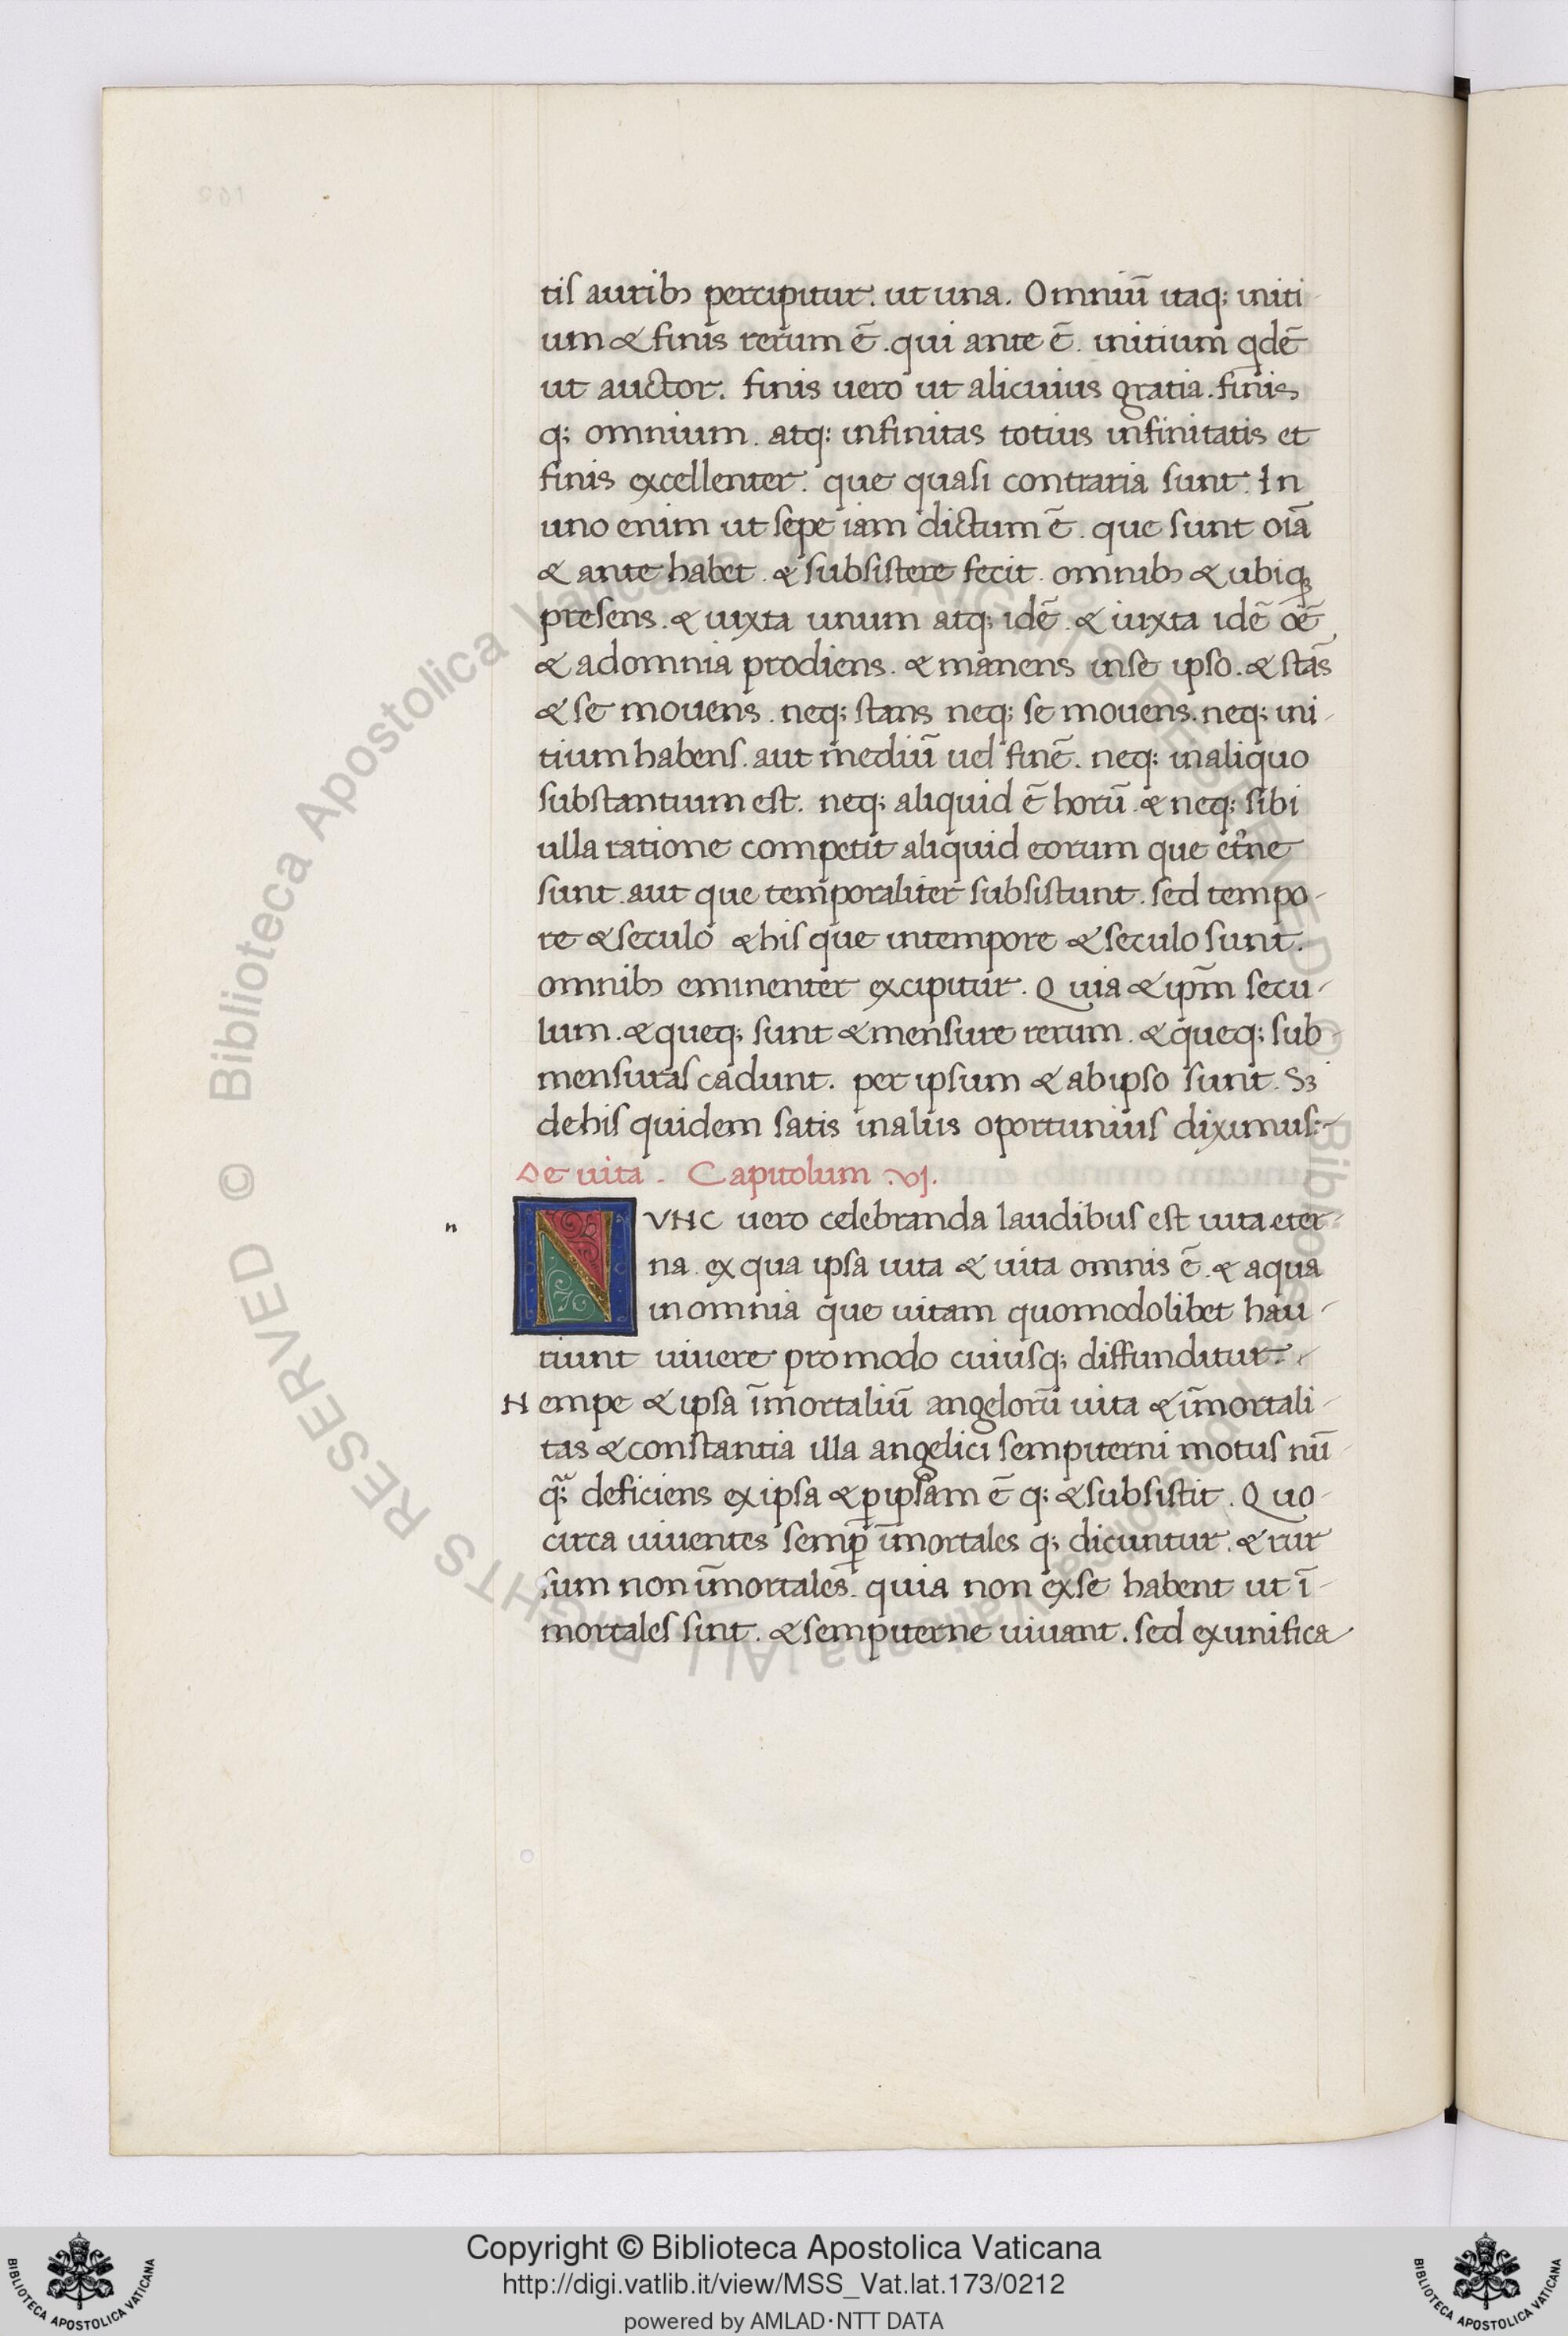 tis auribꝫ percipitur. ut una. Omniū itaq; initi-
um & finis rerum ē. qui ante ē. initium qdē
ut auctor. finis uero ut alicuius gratia. finis
q; omnium. atq; infinitas totius infinitatis et
finis excellenter. que quasi contraria sunt. In
uno enim ut sepe iam dictum ē. que sunt oīa
& ante habet. & subsistere fecit. omnibꝫ & ubiqꝫ
presens. & iuxta unum atq; idē. & iuxta idē oē
& adomnia prodiens. & manens inse ipso. & stās
& se mouens. neq; stans neq; se mouens. neq; ini-
tium habens. aut mediū uel finē. neq; inaliquo
substantium est. neq; aliquid ē horū. & neq; sibi
ulla ratione competit aliquid eorum que et̃ne
sunt. aut que temporaliter subsistunt. sed tempo-
re & seculo & his que intempore & seculo sunt.
omnibꝫ eminenter excipitur. Quia & ipm̄ secu-
lum. & queq; sunt & mensure rerum. & queq; sub-
mensuras cadunt. per ipsum & abipso sunt. Sꝫ
dehis quidem satis inaliis oportunius diximus:-
De uita. Capitolum .vj.
n
NVNC uero celebranda laudibus est uita eter-
na. ex qua ipsa uita & uita omnis ē. & aqua
inomnia que uitam quomodolibet hau-
riunt uiuere pro modo cuiusq; diffunditur.
Nempe & ipsa īmortaliū angelorū uita & īmortali-
tas & constantia illa angelici sempiterni motus nū-
q̃; deficiens ex ipsa & ꝑ ipsam ē q; & subsistit. Quo-
circa uiuentes semꝑ īmortales q; dicuntur. & rur
sum non īmortales. quia non exse habent ut ī-
mortales sint. & sempiterne uiuant. sed exunifica
Copyright © Biblioteca Apostolica Vaticana
http://digi.vatlib.it/view/MSS_Vat.lat.173/0212
powered by AMLAD·NTT DATA